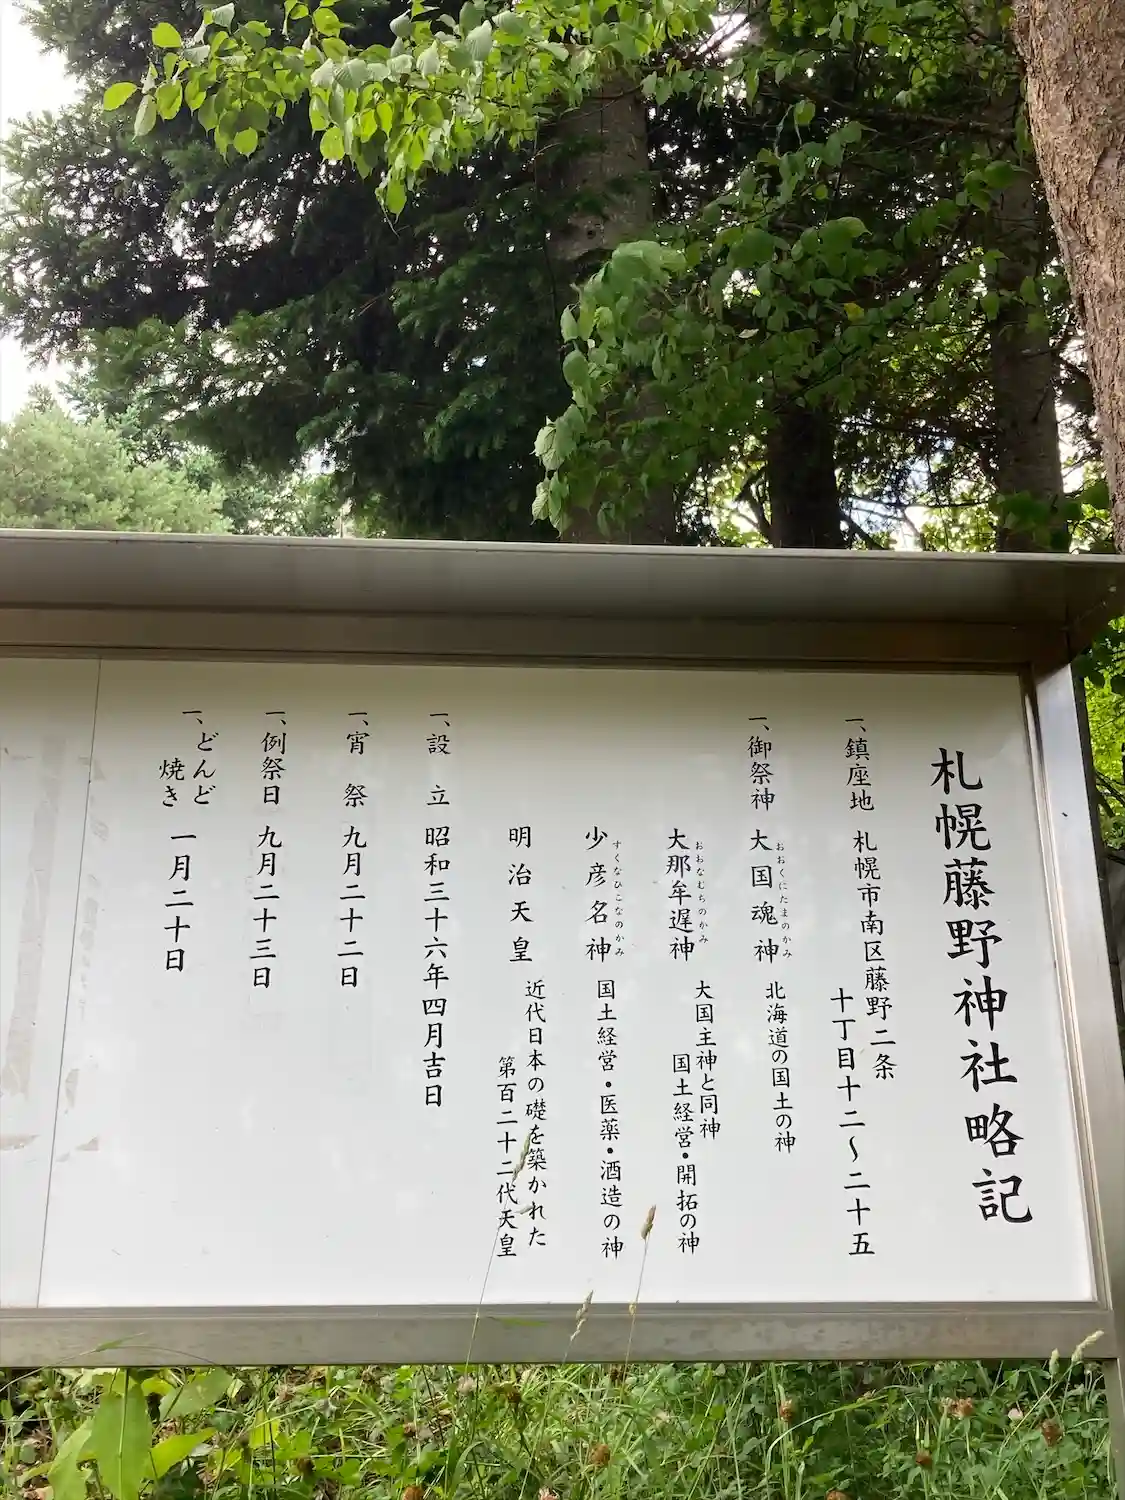 札幌藤野神社略記
一、鎮座地 札幌市南区藤野二条
十丁目十二〜二十五
一、御祭神 大国魂神 北海道の国土の神
おおくにたまのかみ
大那牟遅神 大国主神と同神
おおなむちのかみ
国土経営・開拓の神
少彦名神 国土経営・医薬・酒造の神
すくなひこなのかみ
明治天皇 近代日本の礎を築かれた
第百二十二代天皇
一、設立 昭和三十六年四月吉日
一、宵祭 九月二十二日
一、例祭日 九月二十三日
一、どんど
焼き 一月二十日